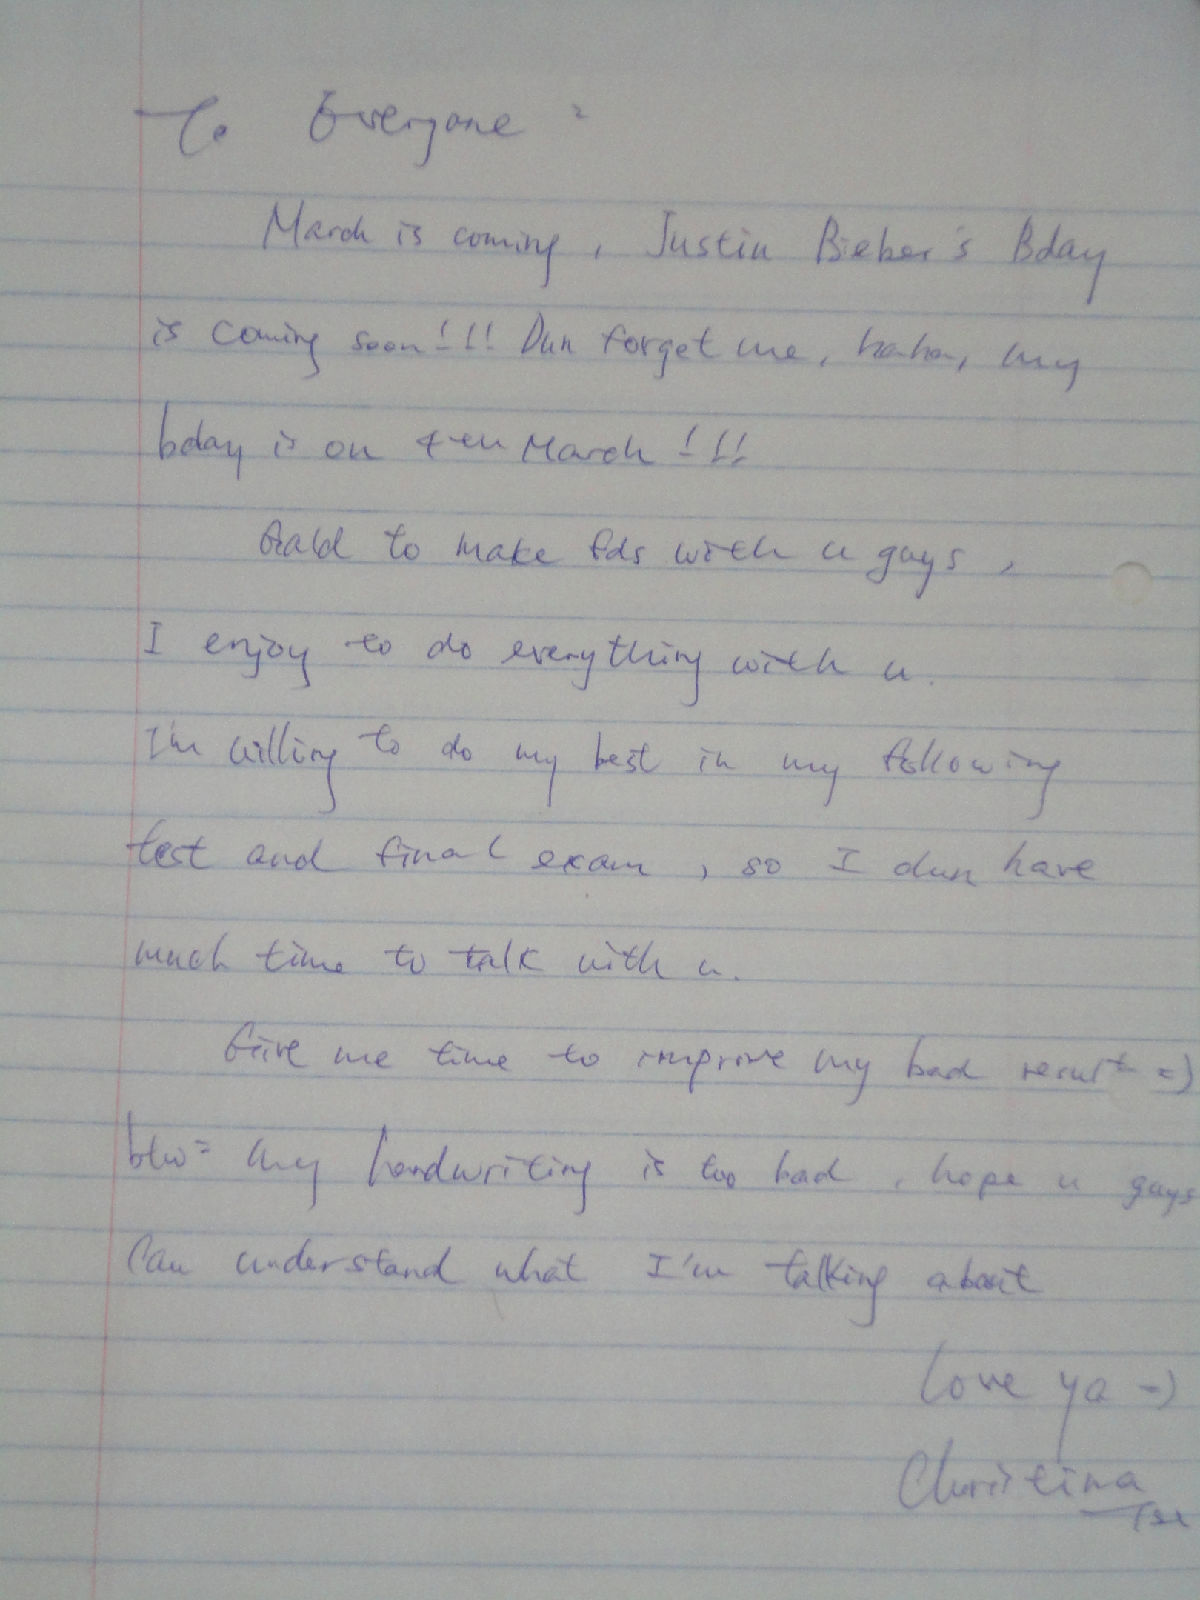 To Everyone :
March is coming, Justin Bieber's Bday
is coming soon!!! Dun forget me, haha, my
bday is on 4th March!!!
Gald to make fds with u guys,
I enjoy to do everything with u.
I'm willing to do my best in my following
test and final exam, so I dun have
much time to talk with u.
Give me time to improve my bad result =)
btw= my handwriting is too bad, hope u guys
Can understand what I'm talking about
Love ya =)
Christina
Tse